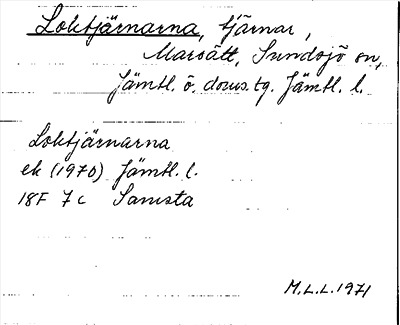 Loktjärnarna, tjärnar,
Marsätt, Sundsjö sn,
Jämtl. ö. doms.tg. Jämtl. l.
Loktjärnarna
ek (1970) Jämtl. l.
18F 7c Samsta
M.L.L. 1971